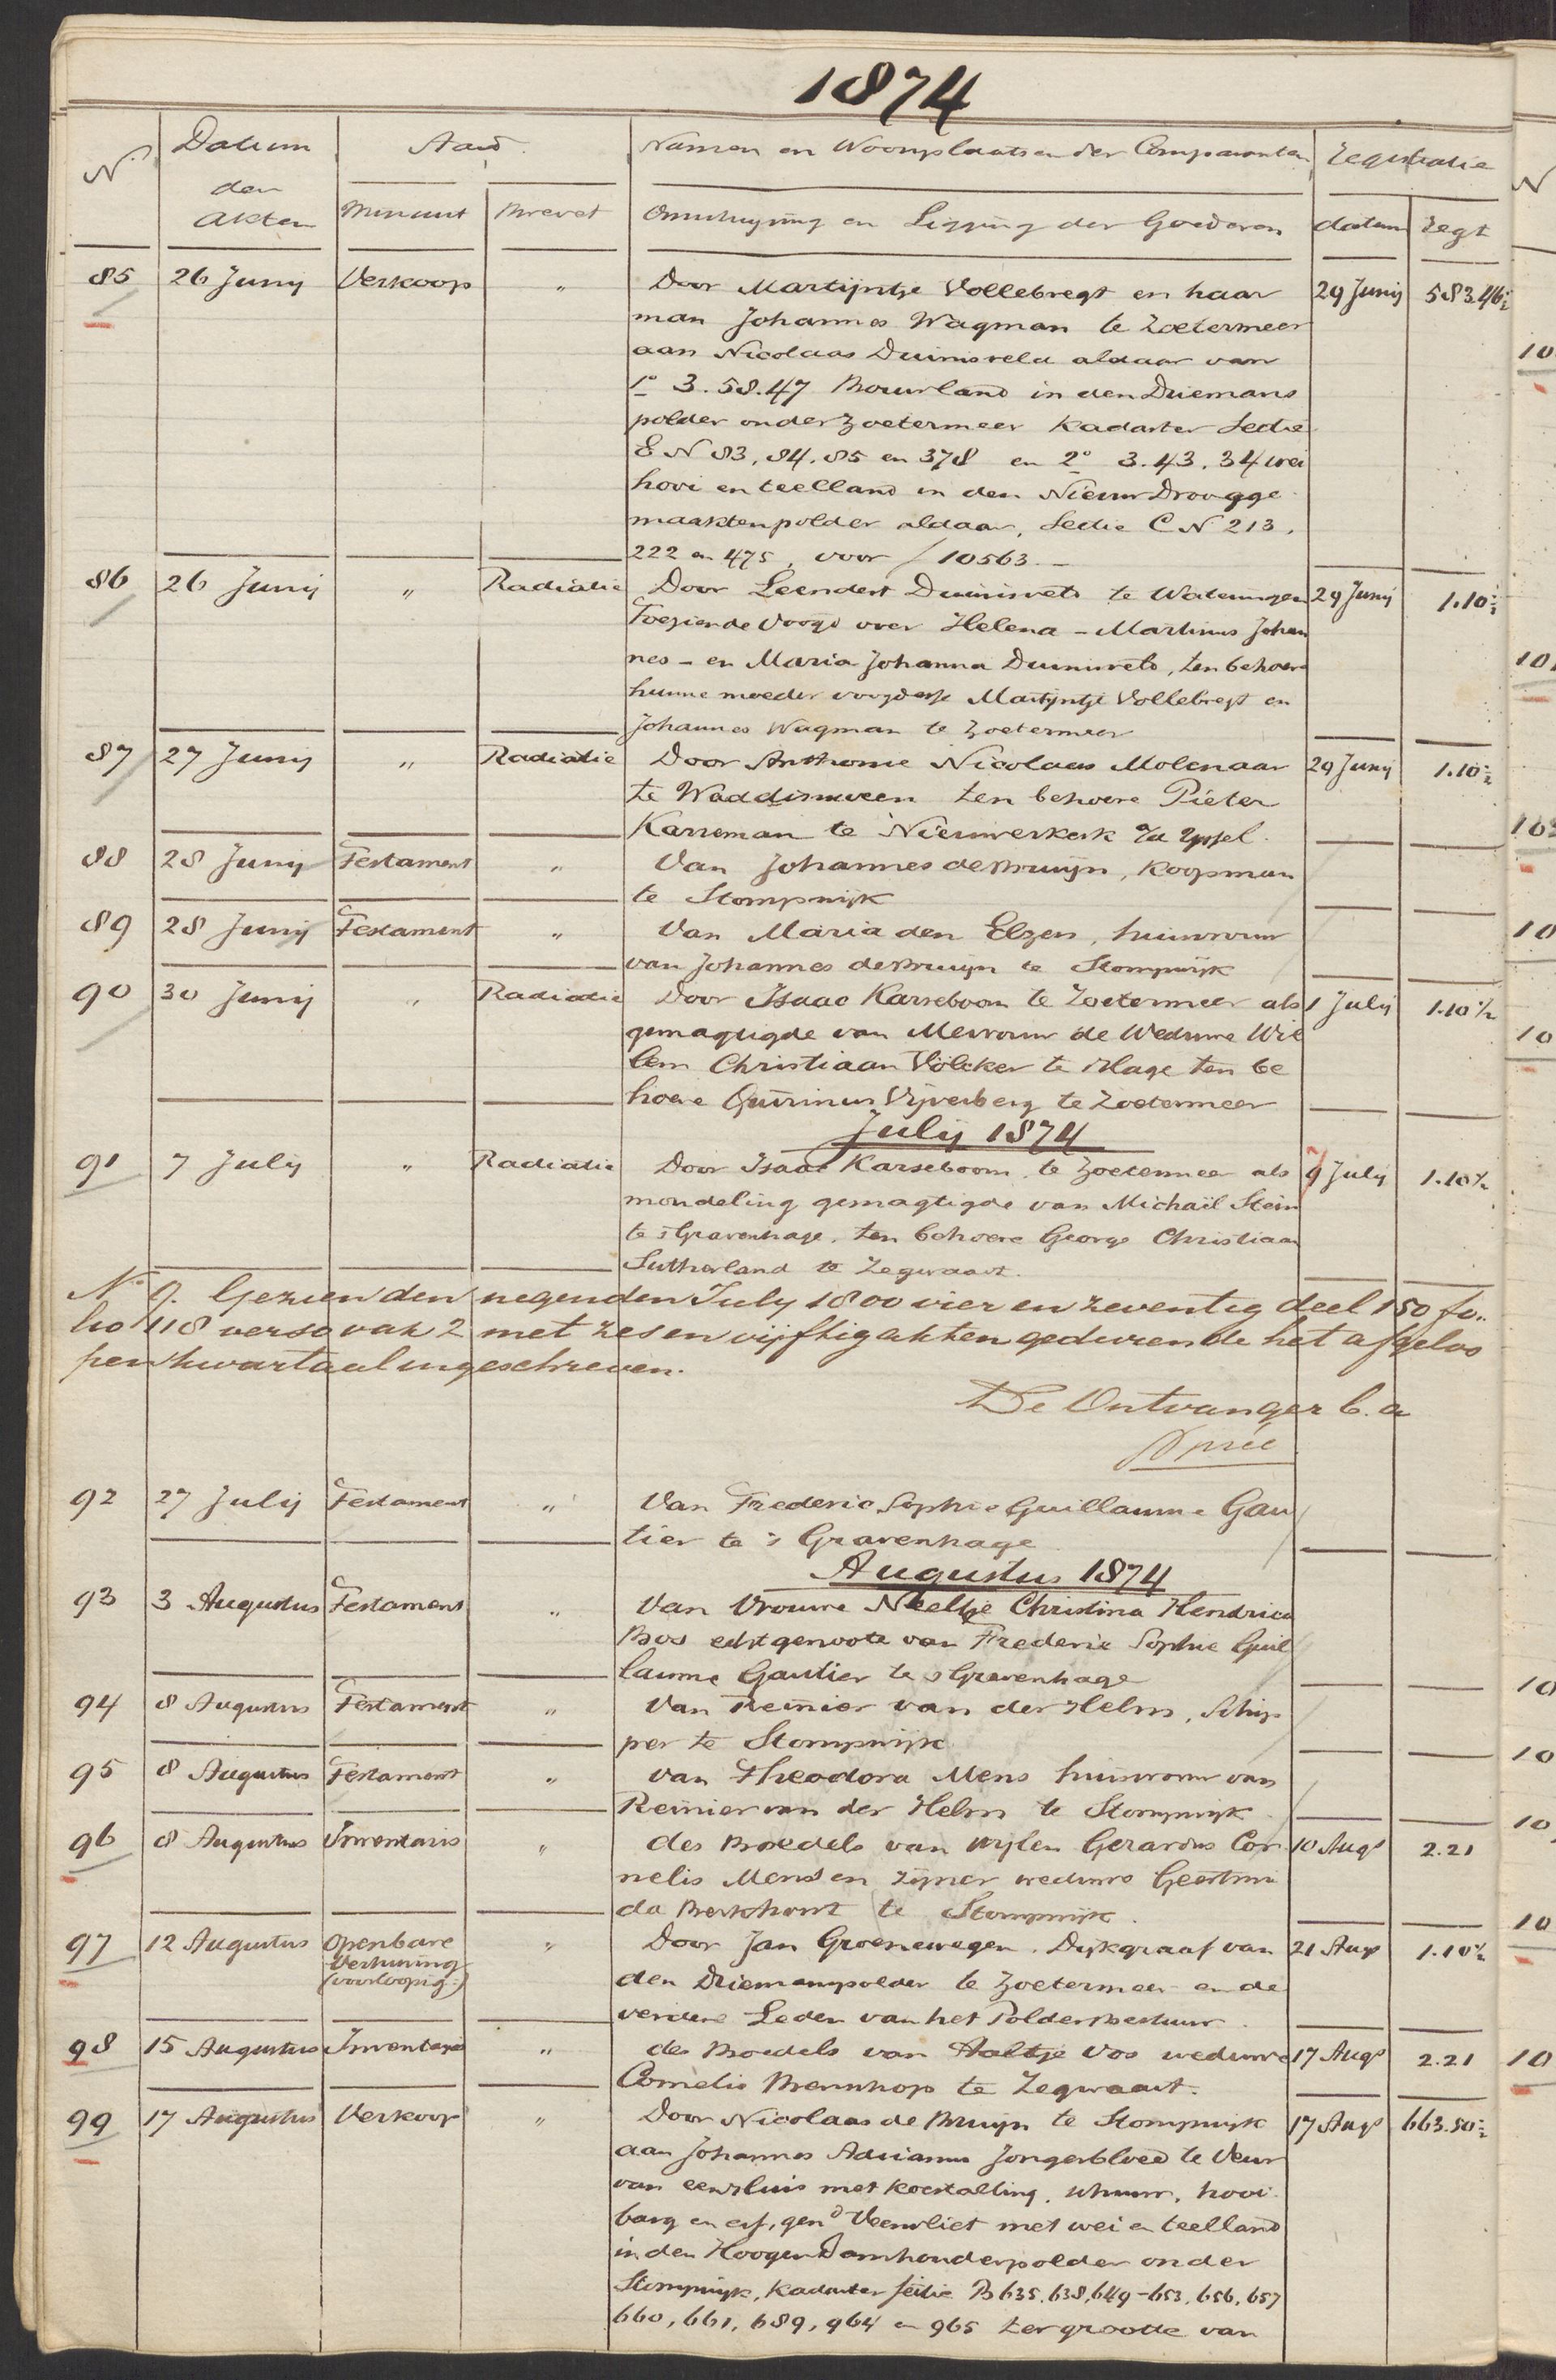 1874
No Datum der Akten Aard Namen en Woonplaatsen der Comparanten Registratie
Minuut Brevet Omschrijving en Ligging der Goederen datum Regt
85 26 Junij Verkoop " Door Martijntje Vollebregt en haar 29 Junij 583.46½
man Johannes Wagman te Zoetermeer
aan Nicolaas Duinisveld aldaar van
1° 3.58.47 Bouwland in den Driemans
polder onder Zoetermeer Kadaster Sectie
E N 83, 84, 85 en 378 en 2° 3.43.34 wei
hooi en teelland in den Nieuw Droogge
maaktenpolder aldaar, Sectie C N 213,
222 en 475, voor f 10563.-
86 26 Junij " Radiatie Door Leendert Duinisveld te Wateringen 29 Junij 1.10½
Toeziende Voogd over Helena - Martinus Johan
nes - en Maria Johanna Duinisveld, ten behoeve
hunne moeder voogdesse Martijntje Vollebregt en
Johannes Wagman te Zoetermeer
87 27 Junij " Radiatie Door Anthonie Nicolaas Molenaar 29 Junij 1.10½
te Waddinxveen ten behoeve Pieter
Karreman te Nieuwerkerk a/d Yssel.
88 28 Junij Testament " Van Johannes de Bruijn, Koopman
te Stompwijk
89 28 Junij Testament " Van Maria den Elzen, huisvrouw
van Johannes de Bruijn te Stompwijk
90 30 Junij " Radiatie Door Isaac Karseboom te Zoetermeer als 1 Julij 1.10½
gemagtigde van Mevrouw de Weduwe Wil
lem Christiaan Völcker te 'sHage ten be
hoeve Quirinus Vijverberg te Zoetermeer
Julij 1874
91 7 Julij " Radiatie Door Isaac Karseboom te Zoetermeer als 9 Julij 1.10½
mondeling gemagtigde van Michaël Stein
te 's Gravenhage, ten behoeve George Christiaan
Sutherland te Zegwaart.
No 9. Gezien den negenden July 1800 vier en zeventig deel 150 fo..
lio 118 verso vak 2 met zes en vijftig akten gedurende het afgeloo
pen kwartaal ingeschreven.
De Ontvanger b. a
92 27 Julij Testament " Van Frederic Sophie Guillaume Gau
tier te 's Gravenhage
Augustus 1874
93 3 Augustus Testament " Van Vrouwe Neeltje Christina Hendrica
Bos echtgenoote van Frederic Sophie Guil
laume Gautier te 's Gravenhage
94 8 Augustus Testament " Van Reinier van der Helm, Schip
per te Stompwijk
95 8 Augustus Testament " Van Theodora Mens huisvrouw van
Reinier van der Helm te Stompwijk
96 8 Augustus Inventaris " des Boedels van wijlen Gerardus Cor 10 Augs 2.21
nelis Mens en zijner weduwe Geertrui
da Berkhout te Stompwijk.
97 12 Augustus Openbare " Door Jan Groenewegen, Dijkgraaf van 21 Augs 1.10½
Verhuring den Driemanspolder te Zoetermeer en de
(voorloopig:) verdere Leden van het Polderbestuur.
98 15 Augustus Inventaris " des Boedels van Aaltje Vos weduwe 17 Augs 2.21
Cornelis Brennhop te Zegwaart.
99 17 Augustus Verkoop " Door Nicolaas de Bruijn te Stompwijk 17 Augs 663.50½
aan Johannes Adrianus Jongerbloed te Veur
van een huis met koestalling, schuur, hooi
barg en erf, gend Veenvliet met wei en teelland
in den Hoogen Damhouderpolder onder
Stompwijk, Kadaster Sectie B 635, 638, 649-653, 656, 657
660, 661, 689, 964 en 965 ter grootte van